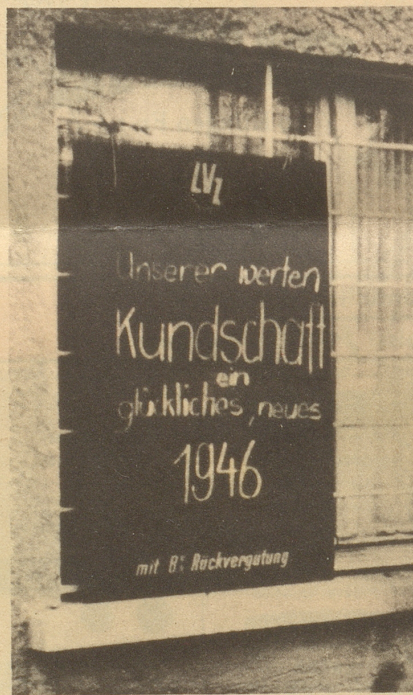 LVZ
Unserer werten
Kundschaft
ein
glückliches, neues
1946
mit 8% Rückvergütung